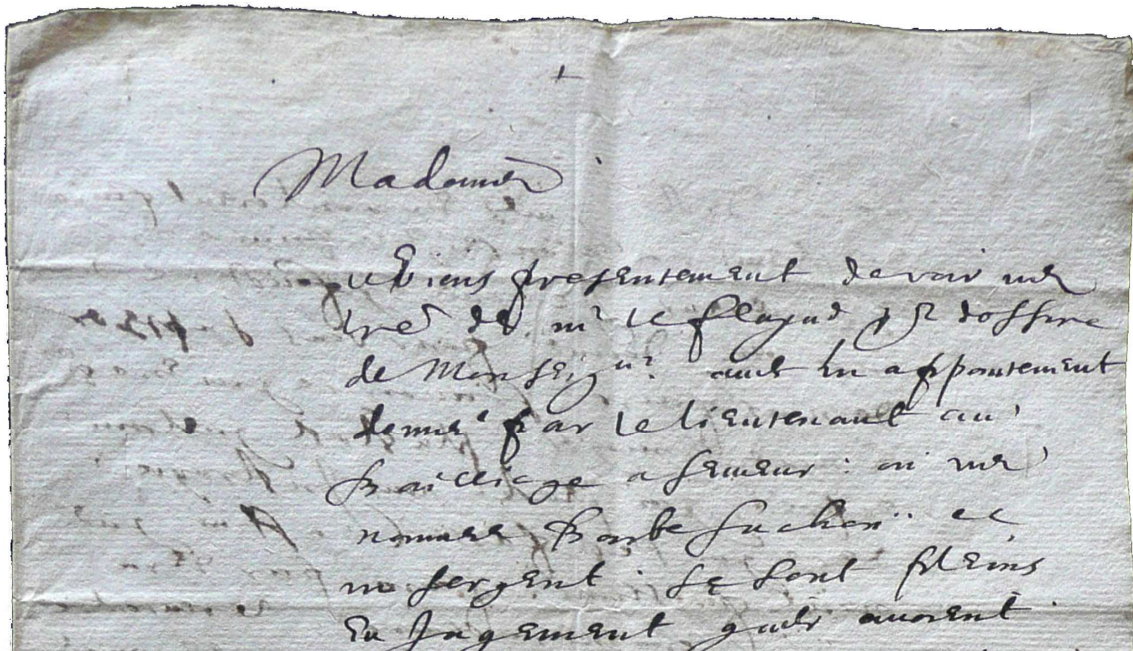 Madame
Je Viens presentement de voir une
lre de mr le pr doffice
de Monseigr avec un appointement
donne par le lieutenant au
bailliage a semeur : ou une
nommee barbe et
un sergent se sont pleins
En Jugement quils avoient